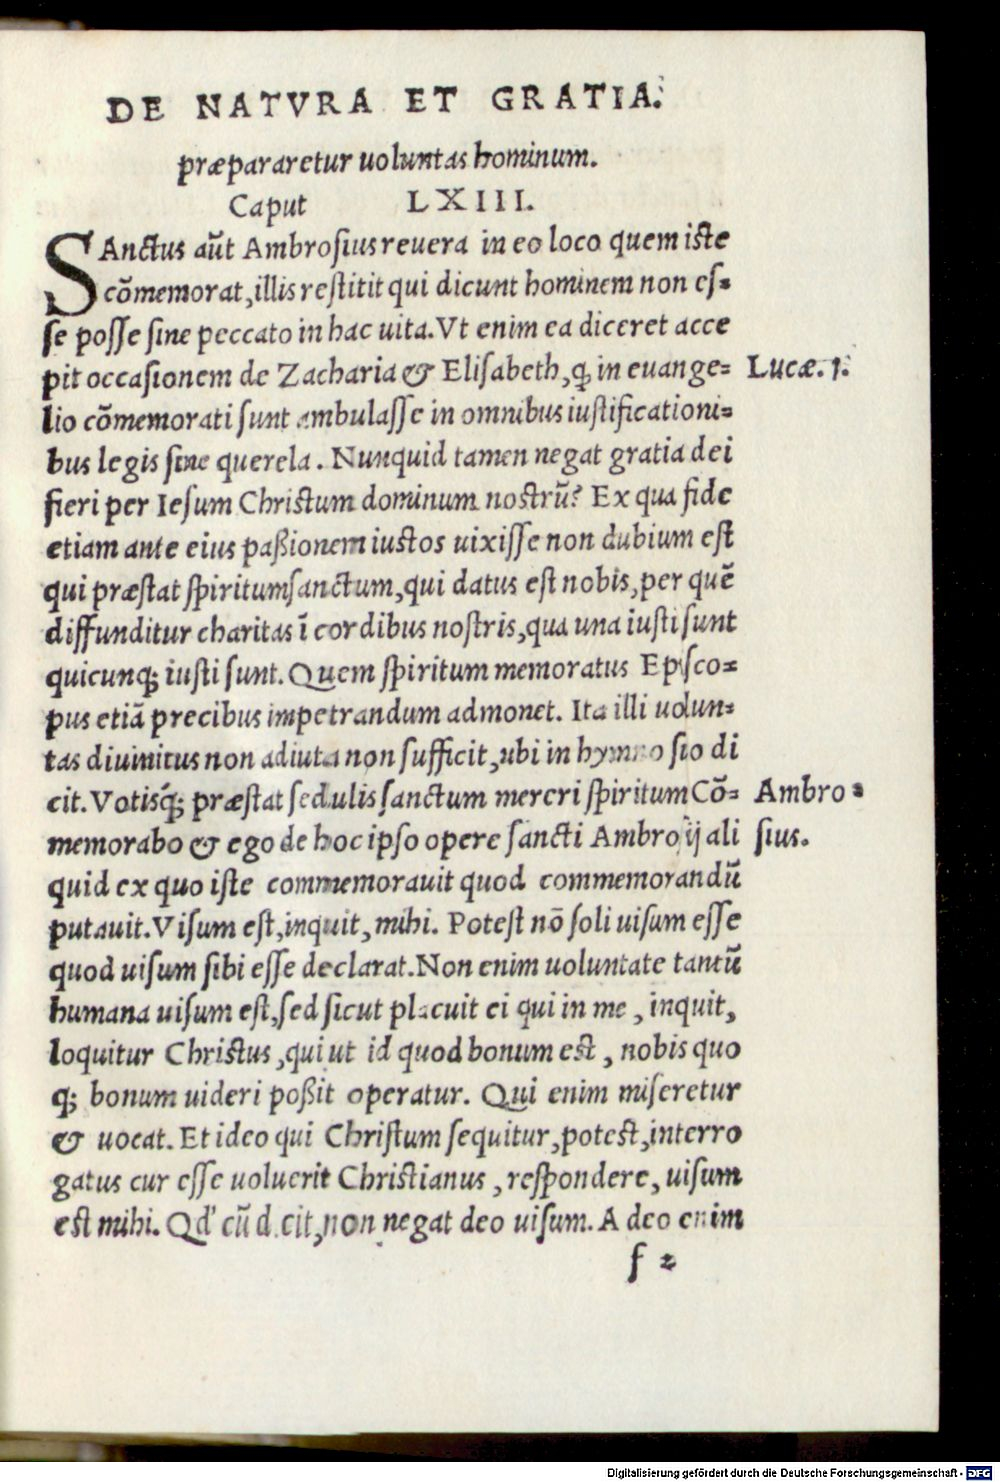 DE NATVRA ET GRATIA.
præpararetur uoluntas hominum.
Caput LXIII.
SAnctus aũt Ambrosius reuera in eo loco quem iste
cõmemorat, illis restitit qui dicunt hominem non es-
se posse sine peccato in hac uita. Vt enim ea diceret acce
pit occasionem de Zacharia & Elisabeth, ꝙ in euange- Lucæ. 1.
lio cõmemorati sunt ambulasse in omnibus iustificationi-
bus legis sine querela. Nunquid tamen negat gratia dei
fieri per Iesum Christum dominum nostrũ? Ex qua fide
etiam ante eius paßionem iustos uixisse non dubium est
qui præstat spiritumsanctum, qui datus est nobis, per quẽ
diffunditur charitas ĩ cordibus nostris, qua una iusti sunt
quicunq; iusti sunt. Quem spiritum memoratus Episco-
pus etiã precibus impetrandum admonet. Ita illi uolun-
tas diuinitus non adiuta non sufficit, ubi in hymno sio di
cit. Votisq̃; præstat sedulis sanctum mereri spiritum Cõ- Ambro-
memorabo & ego de hoc ipso opere sancti Ambro ij ali sius.
quid ex quo iste commemorauit quod commemorandũ
putauit. Visum est, inquit, mihi. Potest nõ soli uisum esse
quod uisum sibi esse declarat. Non enim uoluntate tantũ
humana uisum est, sed sicut placuit ei qui in me, inquit,
loquitur Christus, qui ut id quod bonum est, nobis quo
q; bonum uideri poßit operatur. Qui enim miseretur
& uocat. Et ideo qui Christum sequitur, potest, interro
gatus cur esse uoluerit Christianus, respondere, uisum
est mihi. Qd' cũ d cit, non negat deo uisum. A deo enim
f 2
Digitalisierung gefördert durch die Deutsche Forschungsgemeinschaft - DFG